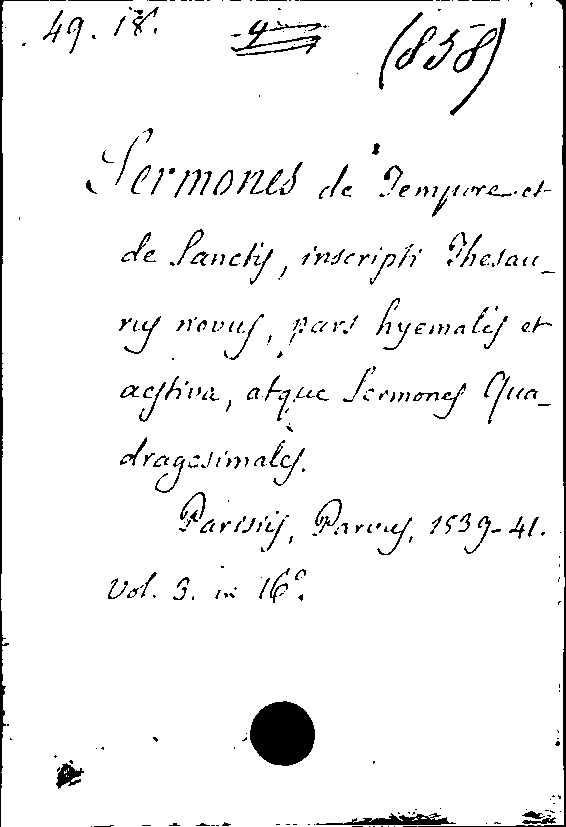 49. 18. (858)
Sermones de Tempore et
de Sanctis, inscripti Thesau-
rus novus, pars hyemalis et
aestiva, atque Sermones Qua-
dragesimales.
Parisiis, Parvus, 1539-41.
Vol. 3. in 16°.